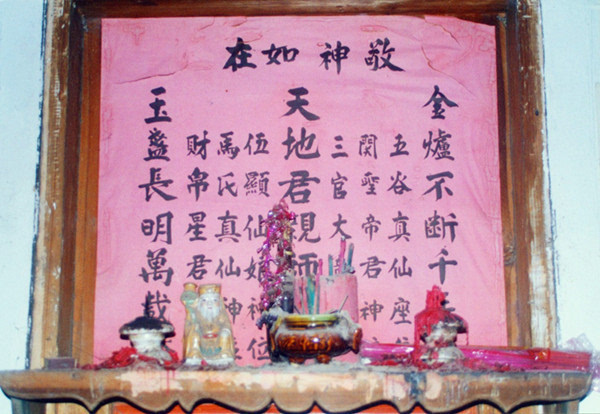 敬神如在
金爐不斷千
五谷真仙座位
関聖帝君神
三官大
天地君親師
伍顯仙娘神位
馬氏真仙神
財帛星君
玉盞長明萬載